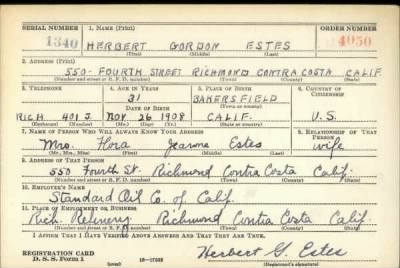 SERIAL NUMBER 1. NAME (Print) ORDER NUMBER
1340 HERBERT GORDON ESTES 4050
(First) (Middle) (Last)
2. ADDRESS (Print)
550- FOURTH STREET RICHMOND CONTRA COSTA CALIF.
(Number and street or R. F. D. number) (Town) (County) (State)
3. TELEPHONE 4. AGE IN YEARS 5. PLACE OF BIRTH 6. COUNTRY OF CITIZENSHIP
31 BAKERSFIELD
DATE OF BIRTH (Town or county)
RICH 401 J NOV 26 1908 CALIF. U.S.
(Exchange) (Number) (Mo.) (Day) (Yr.) (State or country)
7. NAME OF PERSON WHO WILL ALWAYS KNOW YOUR ADDRESS 8. RELATIONSHIP OF THAT PERSON
Mrs. Flora Jeanne Estes wife
(Mr., Mrs., Miss) (First) (Middle) (Last)
9. ADDRESS OF THAT PERSON
550 Fourth St. Richmond Contra Costa Calif.
(Number and street or R. F. D. number) (Town) (County) (State)
10. EMPLOYER'S NAME
Standard Oil Co. of Calif.
11. PLACE OF EMPLOYMENT OR BUSINESS
Rich. Refinery Richmond Contra Costa Calif.
(Number and street or R. F. D. number) (Town) (County) (State)
I AFFIRM THAT I HAVE VERIFIED ABOVE ANSWERS AND THAT THEY ARE TRUE.
REGISTRATION CARD Herbert G. Estes
D. S. S. Form 1 (over) 16-17105 (Registrant's signature)